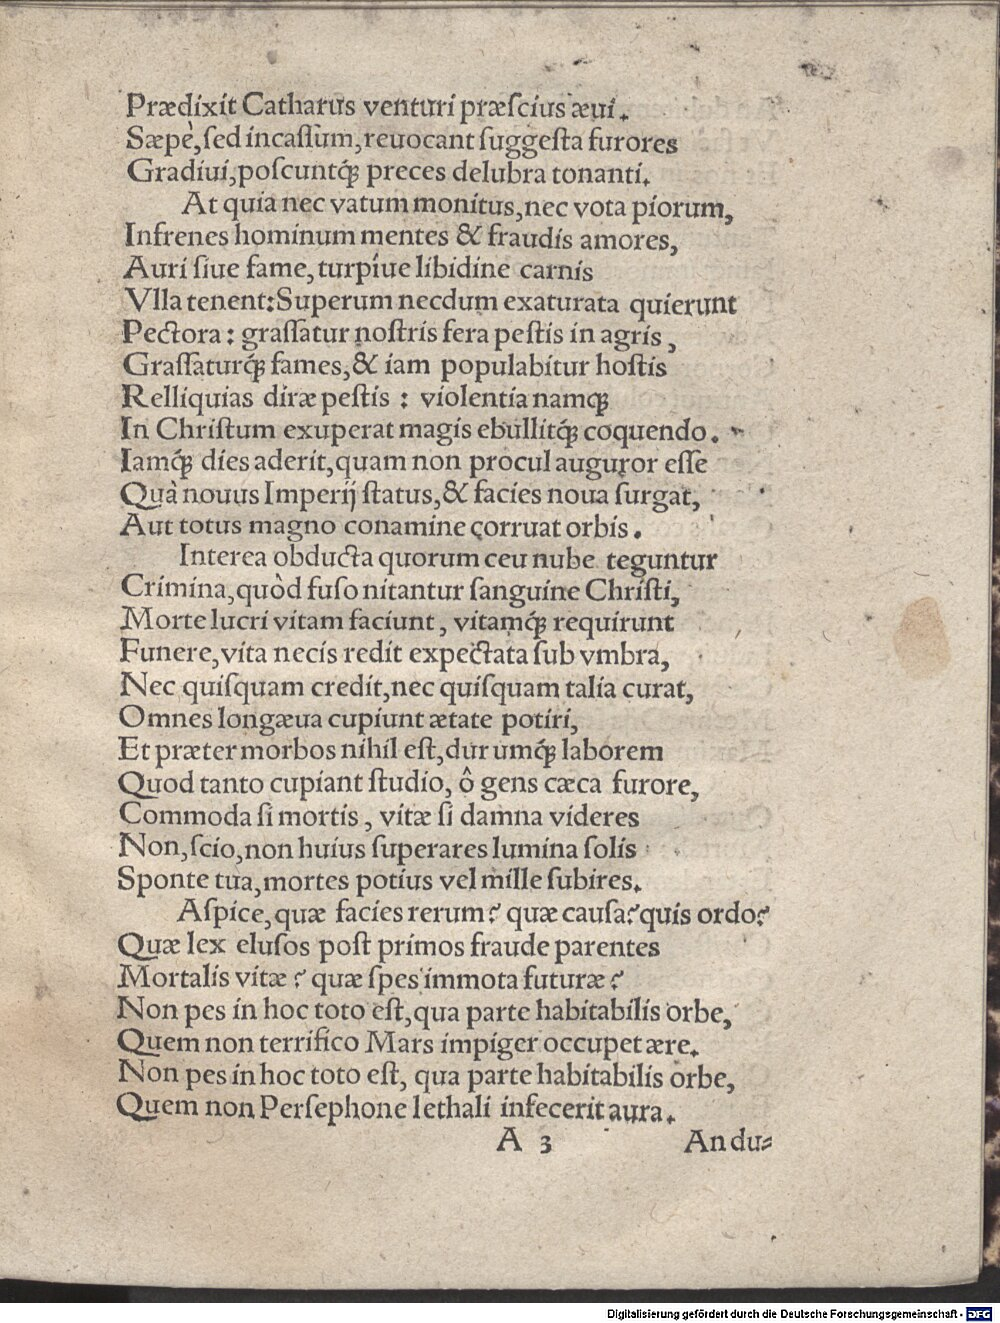 Prædixit Catharus venturi præſcius æui.
Sæpè, ſed incaſſum, reuocant ſuggeſta furores
Gradiui, poſcuntq́; preces delubra tonanti.
At quia nec vatum monitus, nec vota piorum,
Infrenes hominum mentes & fraudis amores,
Auri ſiue fame, turpíue libidine carnis
Vlla tenent: Superum necdum exaturata quierunt
Pectora: graſſatur noſtris fera peſtis in agris,
Graſſaturq́; fames, & iam populabitur hoſtis
Relliquias diræ peſtis: violentia namq;
In Chriſtum exuperat magis ebullitq́; coquendo.
Iamq́; dies aderit, quam non procul auguror eſſe
Quà nouus Imperij ſtatus, & facies noua ſurgat,
Aut totus magno conamine corruat orbis.
Interea obducta quorum ceu nube teguntur
Crimina, quòd fuſo nitantur ſanguine Chriſti,
Morte lucri vitam faciunt, vitamq́; requirunt
Funere, vita necis redit expectata ſub vmbra,
Nec quiſquam credit, nec quiſquam talia curat,
Omnes longæua cupiunt ætate potiri,
Et præter morbos nihil eſt, durumq́; laborem
Quod tanto cupiant ſtudio, ô gens cæca furore,
Commoda ſi mortis, vitæ ſi damna videres
Non, ſcio, non huius ſuperares lumina ſolis
Sponte tua, mortes potius vel mille ſubires.
Aſpice, quæ facies rerum? quæ cauſa? quis ordo?
Quæ lex eluſos poſt primos fraude parentes
Mortalis vitæ? quæ ſpes immota futuræ?
Non pes in hoc toto eſt, qua parte habitabilis orbe,
Quem non terrifico Mars impiger occupet ære.
Non pes in hoc toto eſt, qua parte habitabilis orbe,
Quem non Perſephone lethali infecerit aura.
A 3 An du⸗
Digitalisierung gefördert durch die Deutsche Forschungsgemeinschaft - DFG